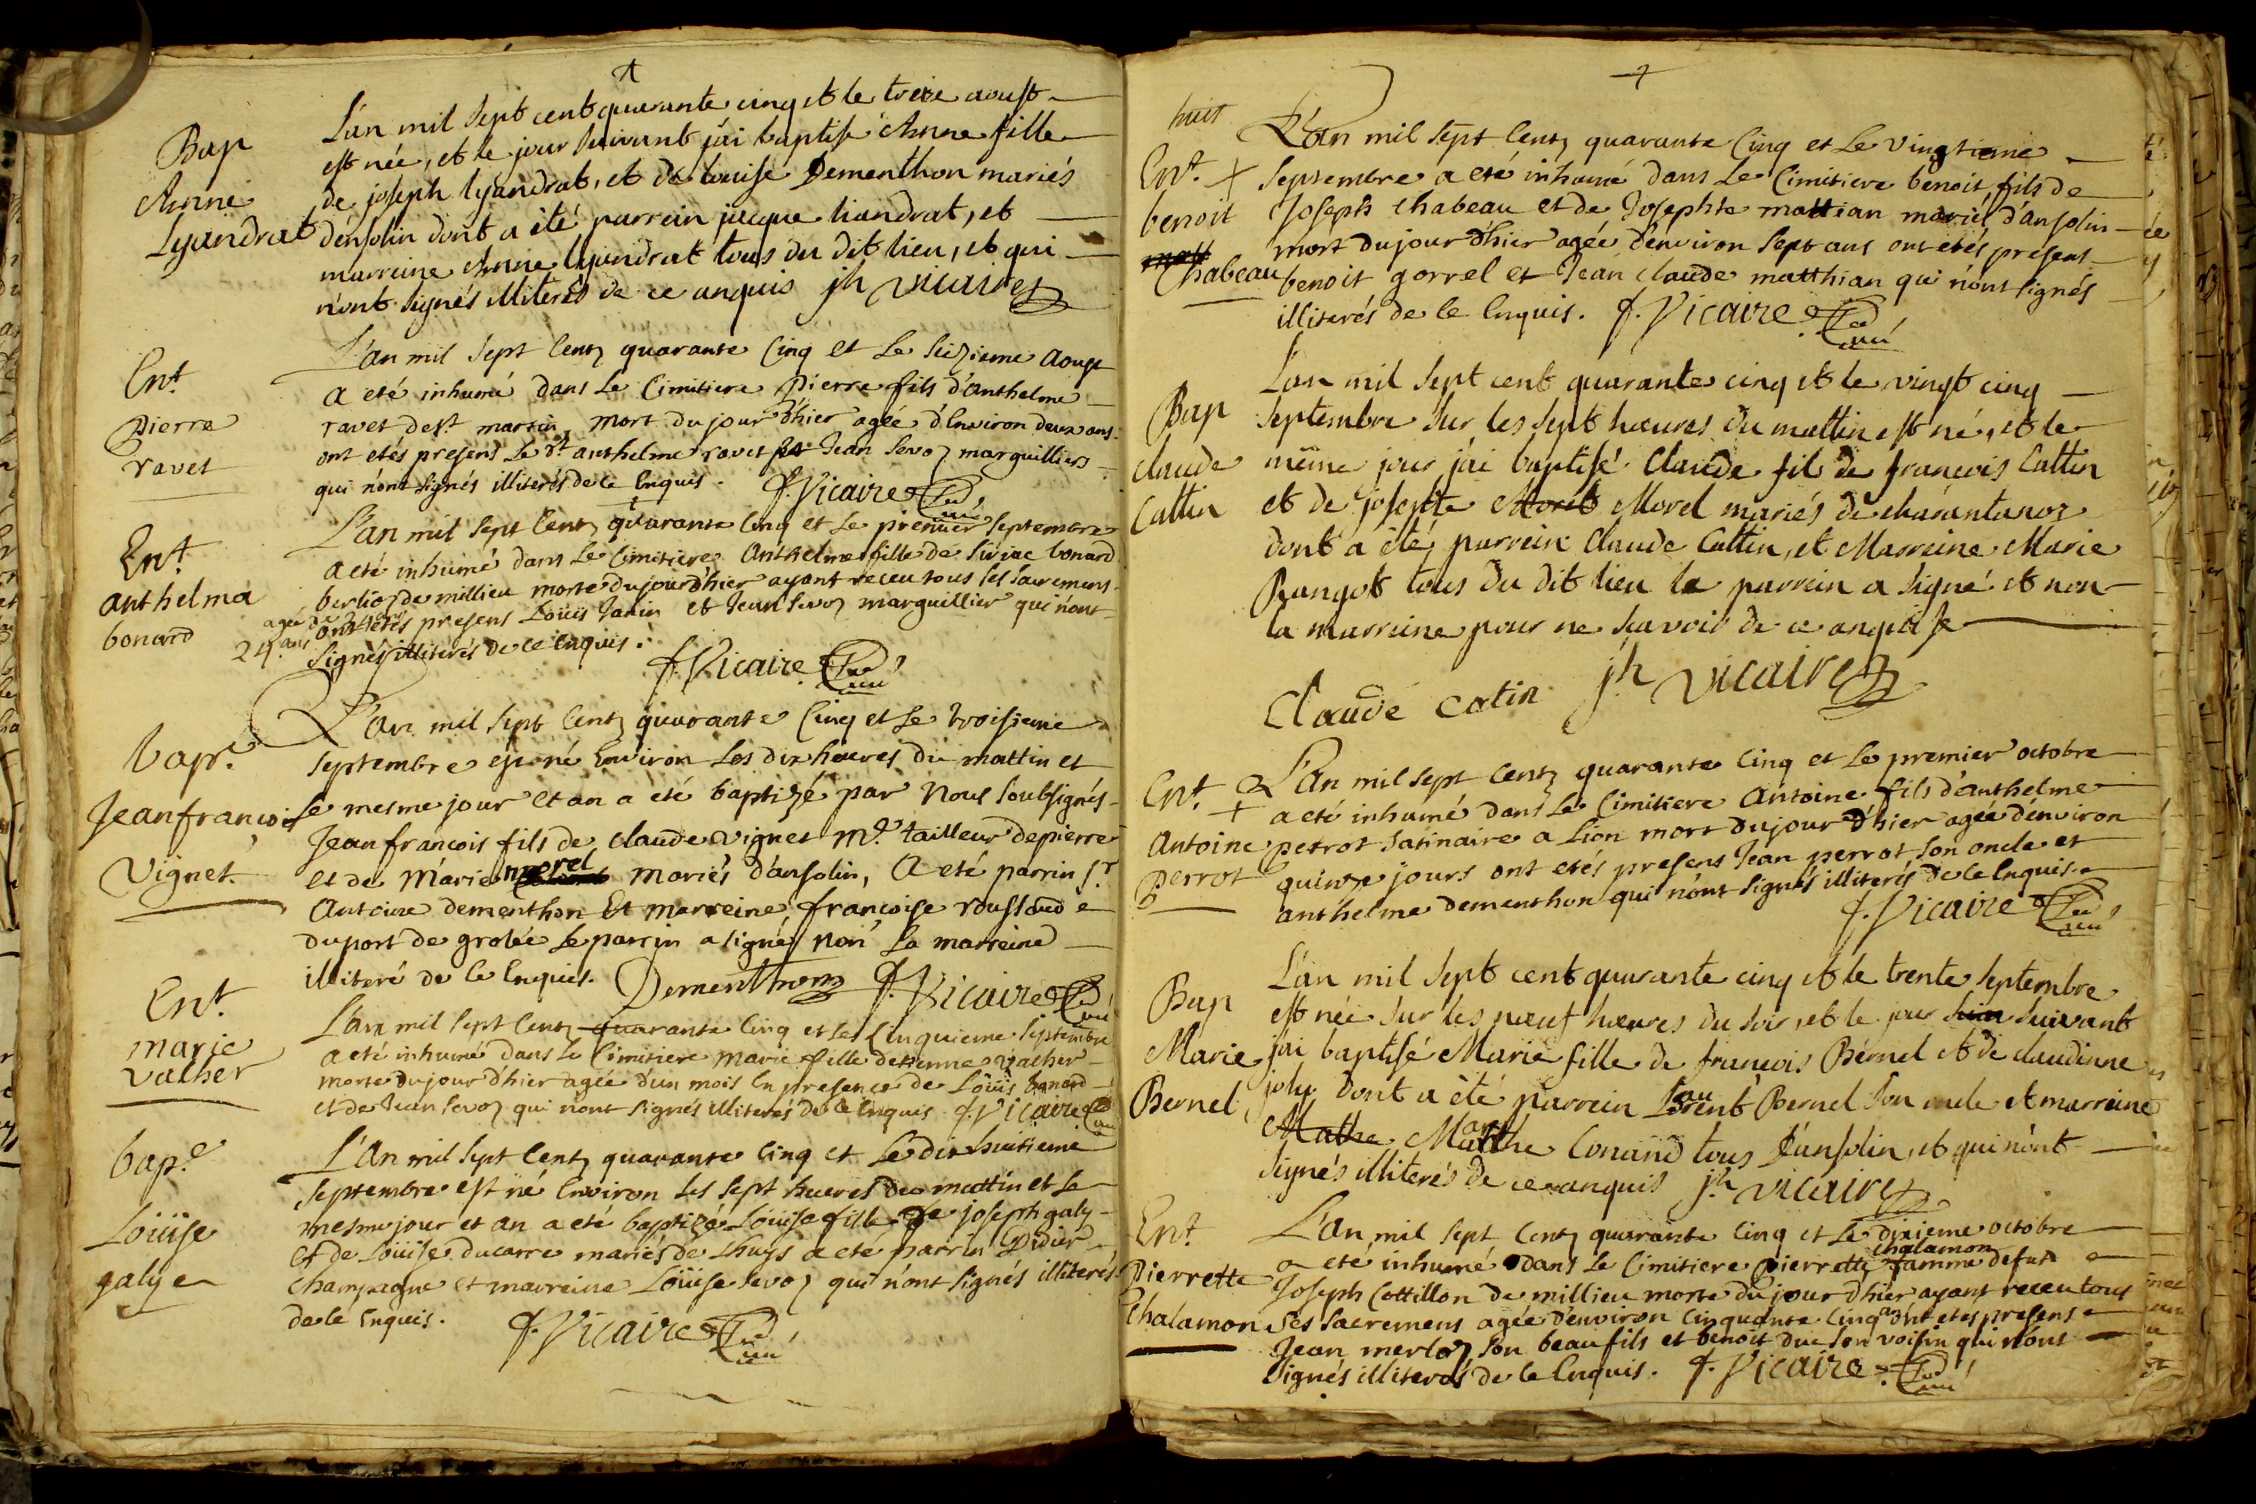 Bap
Anne
Lyandrat
L'an mil sept cent quarante cinq et le treize aoust
est née, et le jour suivant j'ai baptisé Anne fille
de joseph lyandrat, et de louise Dementhon mariés
d'ensolin dont a été parrein jacque liandrat, et
marreine Anne lyandrat tous du dit lieu, et qui
n'ont signés illiterés de ce anquis jh vicaire
Ent
Pierre
ravet
L'an mil sept Cent quarante Cinq et Le seizieme Aoust
a eté inhumé dans Le Cimitiere Pierre fils d'Anthelme
ravet de st martin, mort du jour d'hier agée d'Environ deux ans
ont etés presens Le dt anthelme ravet et Jean Sevoz marguilliers
qui n'ont signés illiterés de ce Enquis. f. Vicaire Curé
Ent
anthelma
bonard
L'an mil sept Cent quarante Cinq et Le premier septembre
a eté inhumé dans Le Cimitiere Anthelme fille de bonard
berlioz de millieu morte du jour d'hier ayant receu tous ses sacremens
agée de 24 ans ont etés presens Loüis Janin et Jean Sevoz marguillier qui n'ont
signés illiterés de ce Enquis. f. Vicaire Curé
bapt.
Jeanfrancois
Vignet.
L'an mil sept Cent quarante Cinq et Le troisieme
septembre est né Environ Les dix heures du mattin et
Le mesme jour et an a eté baptizé par Nous soubsignés
Jeanfrancois fils de Claude vignet me tailleur de pierre
et de Marie morel mariés d'ansolin, A eté parrin sr
Antoine dementhon Et marreine francoise roussoud
du port de grolée Le parrin a signé, non La marreine
illiteré de Ce Enquis. Dementhon f. Vicaire Curé
Ent.
marie
vacher
L'an mil sept Cent quarante Cinq et Le Cinquieme Septembre
a eté inhumé dans Le Cimitiere marie fille detienne vacher
morte du jour d'hier agée d'un mois En presence de Loüis bonard
et de Jean Sevoz qui n'ont signés illiterés de Ce Enquis f. Vicaire Curé
bap.e
Loüise
galy
L'An mil sept Cent quarante Cinq et Le dix huitieme
septembre est né Environ Les sept heures du mattin et Le
mesme jour et an a eté baptizé Loüise fille de joseph galy
et de Loüise ducarre mariés de Lhuys a eté parrin Didier
Champagne et marreine Loüise Sevoz qui n'ont signés illiterés
de Ce Enquis. f. Vicaire Curé
huit
Ent.
benoit
Chabeau
L'an mil sept Cent quarante Cinq et Le vingtieme
Septembre a eté inhumé dans Le Cimitiere benoit fils de
Joseph Chabeau et de Josephte mattian mariés d'ansolin
mort du jour d'hier agée d'environ sept ans ont etés presens
benoit gorrel et Jean Claude matthian qui n'ont signés
illiterés de Ce Enquis. f. Vicaire Curé
Bap
Claude
Cattin
L'an mil sept cent quarante cinq et le vingt cinq
septembre sur les sept heures du mattin est né, et le
même jour j'ai baptisé Claude fils de francois Cattin
et de josephte Moret Morel mariés de charantanoz
dont a été parrein Claude Cattin, et Marreine Marie
Rangot tous du dit lieu le parrein a signé et non
la marreine pour ne sçavoir de ce anquise
Claude catin jh vicaire
Ent.
Antoine
perrot
L'An mil sept Cent quarante Cinq et Le premier octobre
a eté inhumé dans Le Cimitiere Antoine fils d'anthelme
perrot satinaire a Lion mort du jour d'hier agée d'environ
quinze jours ont etés presens Jean perrot son oncle et
anthelme dementhon qui n'ont signés illiterés de Ce Enquis.
f. Vicaire Curé
Bap
Marie
Bernel
L'an mil sept cent quarante cinq et le trente septembre
est née sur les neuf heures du soir, et le jour suivant
j'ai baptisé Marie fille de francois Bernel et de claudinne
joly, dont a été parrein Laurent Bernel son oncle et marreine
Mathe Marthe Conand tous d'ansolin, et qui n'ont
signés illiterés de ce anquis jh vicaire
Ent.
Pierrette
Chalamon
L'an mil sept Cent quarante Cinq et Le dixieme octobre
a eté inhumé dans Le Cimitiere pierrette Chalamon famme defunt
Joseph Cottillon de millieu morte du jour d'hier ayant receu tous
ses Sacremens agée d'environ Cinquante Cinq ans ont etés presens
Jean merloz son beaufils et benoit duc son voisin qui n'ont
signés illiterés de Ce Enquis. f. Vicaire Curé